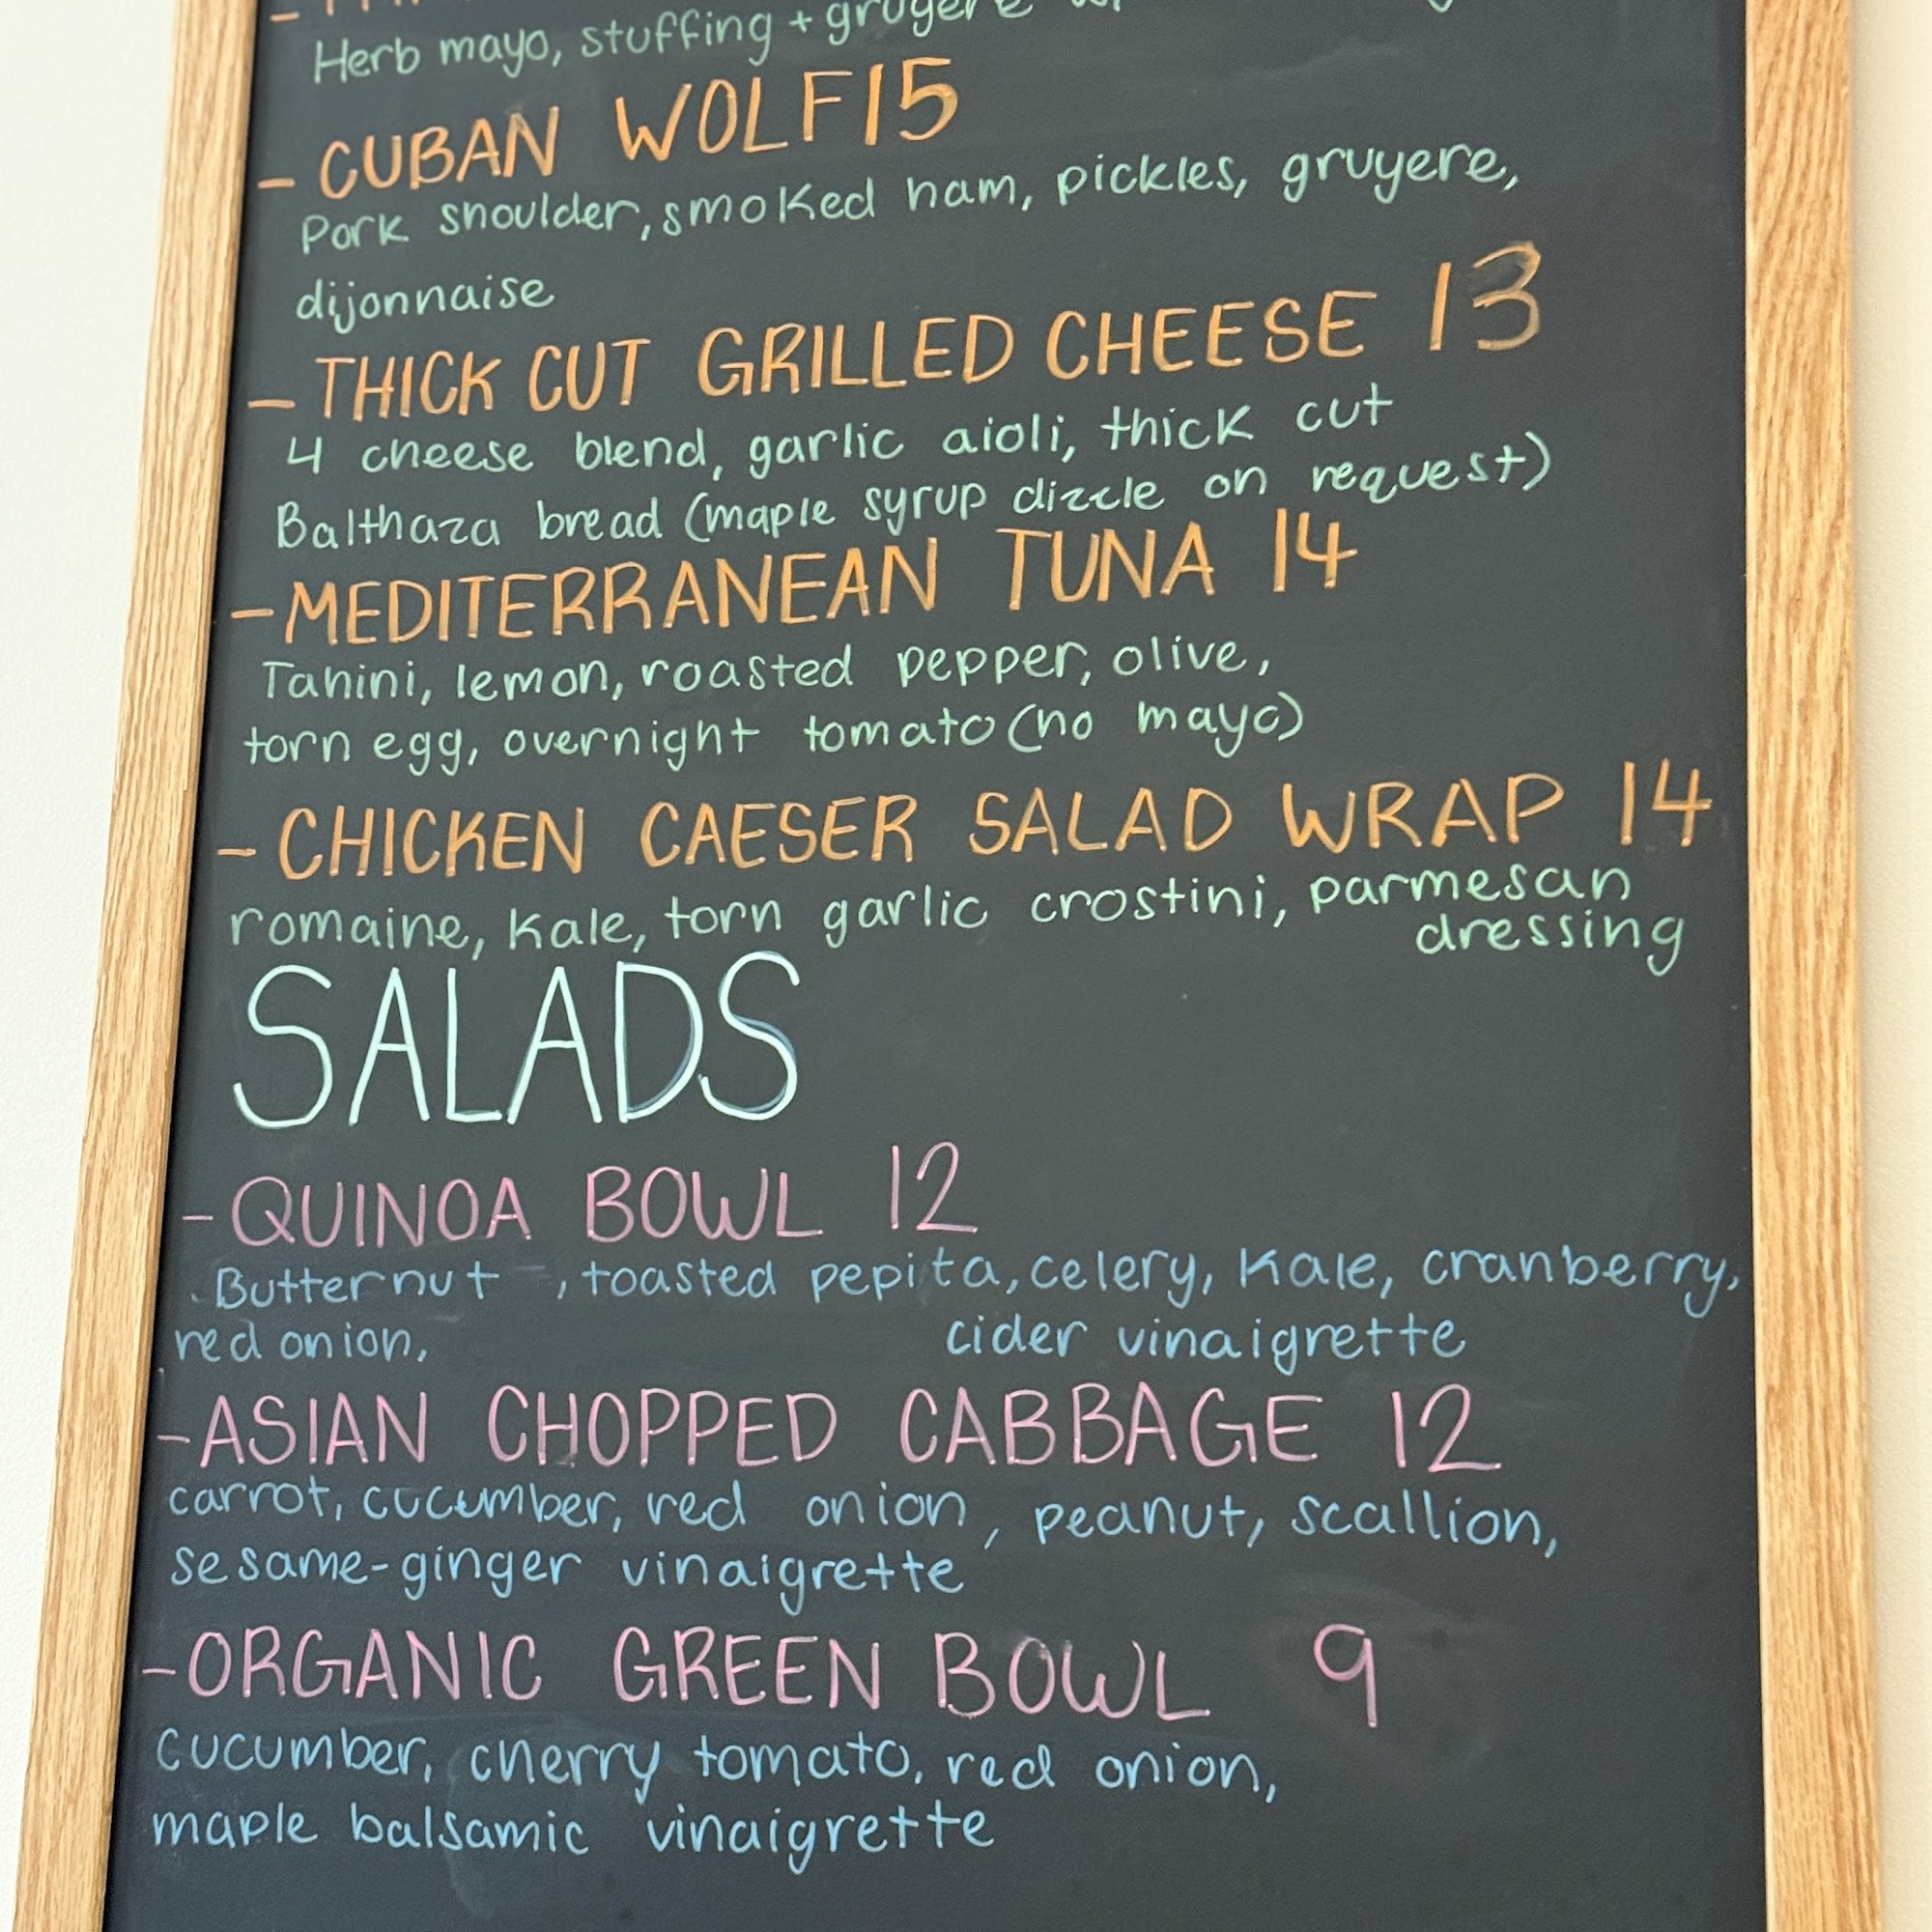 Herb mayo, stuffing + gruyere
- CUBAN WOLF 15
Pork shoulder, smoked ham, pickles, gruyere,
dijonnaise
- THICK CUT GRILLED CHEESE 13
4 cheese blend, garlic aioli, thick cut
Balthaza bread (maple syrup dizzle on request)
- MEDITERRANEAN TUNA 14
Tahini, lemon, roasted pepper, olive,
torn egg, overnight tomato (no mayo)
- CHICKEN CAESER SALAD WRAP 14
romaine, kale, torn garlic crostini, parmesan
dressing
SALADS
- QUINOA BOWL 12
Butternut , toasted pepita, celery, kale, cranberry,
red onion, cider vinaigrette
- ASIAN CHOPPED CABBAGE 12
carrot, cucumber, red onion, peanut, scallion,
sesame-ginger vinaigrette
- ORGANIC GREEN BOWL 9
cucumber, cherry tomato, red onion,
maple balsamic vinaigrette